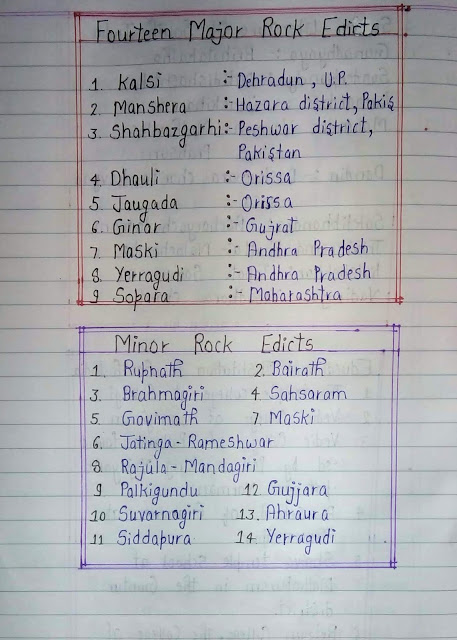 Fourteen Major Rock Edicts
1. Kalsi :- Dehradun, U.P.
2. Manshera :- Hazara district, Pakis
3. Shahbazgarhi :- Peshwar district,
Pakistan
4. Dhauli :- Orissa
5. Jaugada :- Orissa
6. Ginar :- Gujrat
7. Maski :- Andhra Pradesh
8. Yerragudi :- Andhra Pradesh
9 Sopara :- Maharashtra
Minor Rock Edicts
1. Rupnath 2. Bairath
3. Brahmagiri 4 Sahsaram
5. Govimath 7. Maski
6. Jatinga - Rameshwar
8. Rajula - Mandagiri
9 Palkigundu 12 Gujjara
10 Suvarnagiri 13. Ahraura
11 Siddapura 14. Yerragudi